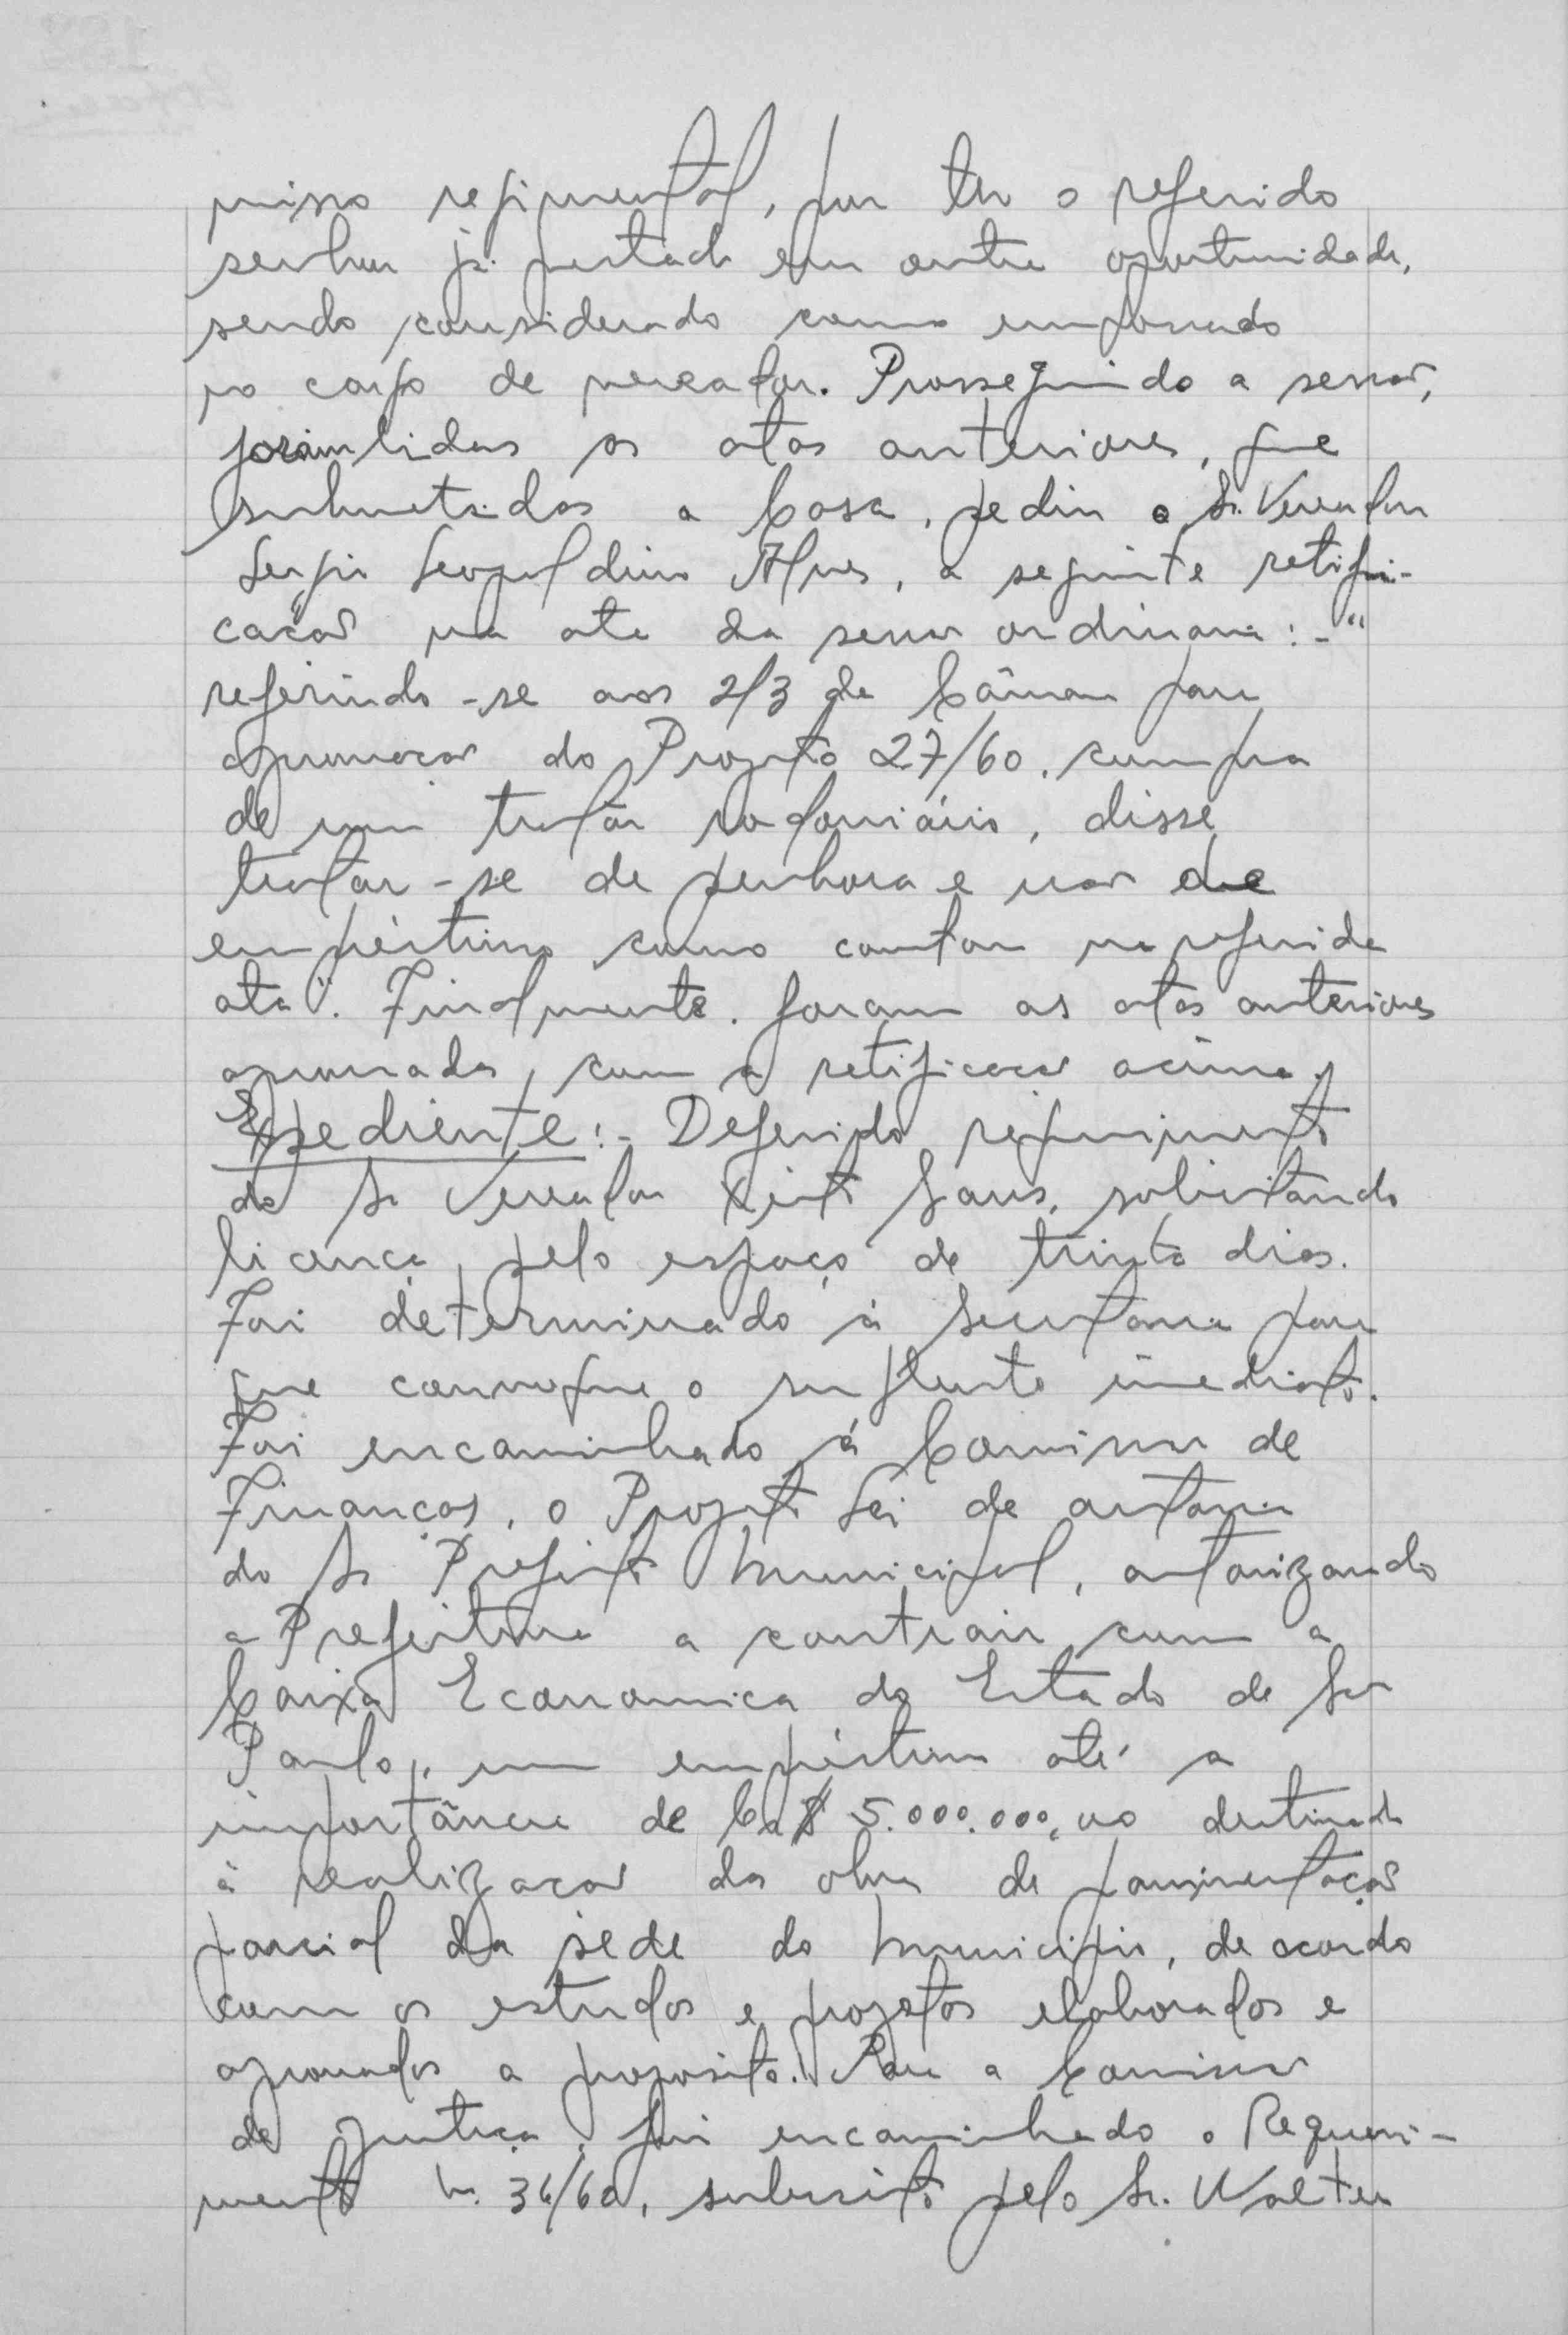 misso regimental, por ter o referido
senhor já prestado em outra oportunidade,
sendo considerado como empossado
no cargo de vereador. Prosseguindo a sessão,
foram lidas as atas anteriores, que
submetidas a Casa, pediu o Sr. Vereador
Sergio Leopoldino Alves, a seguinte retifi-
cacão na ata da sessão ordinaria:- "
referindo-se aos 2/3 da Câmara para
aprovação do Projeto 27/60, compra
de um tratôr rodoviário, disse
tratar-se de penhora e não de
empréstimo como constou na referida
ata". Finalmente, foram as atas anteriores
aprovadas, com a retificação acima.
Expediente:- Deferido requerimento
do Sr Vereador Xisto, solicitando
licença pelo espaço de trinta dias.
Foi determinado à Secretaria para
que convoque o suplente imediato.
Foi encaminhado à Comissão de
Finanças, o Projeto Lei de autoria
do Sr Prefeito Municipal, autorizando
a Prefeitura a contrair com a
Caixa Economica do Estado de São
Paulo, um empréstimo até a
importância de Cr$ 5.000.000,00 destinado
à realização da obra de pavimentação
parcial da séde do Municipio, de acordo
com os estudos e projetos elaborados e
aprovados a proposito. Para a Comissão
de Justiça, foi encaminhado o Requeri-
mento n. 36/60, subscrito pelo Sr. Walter